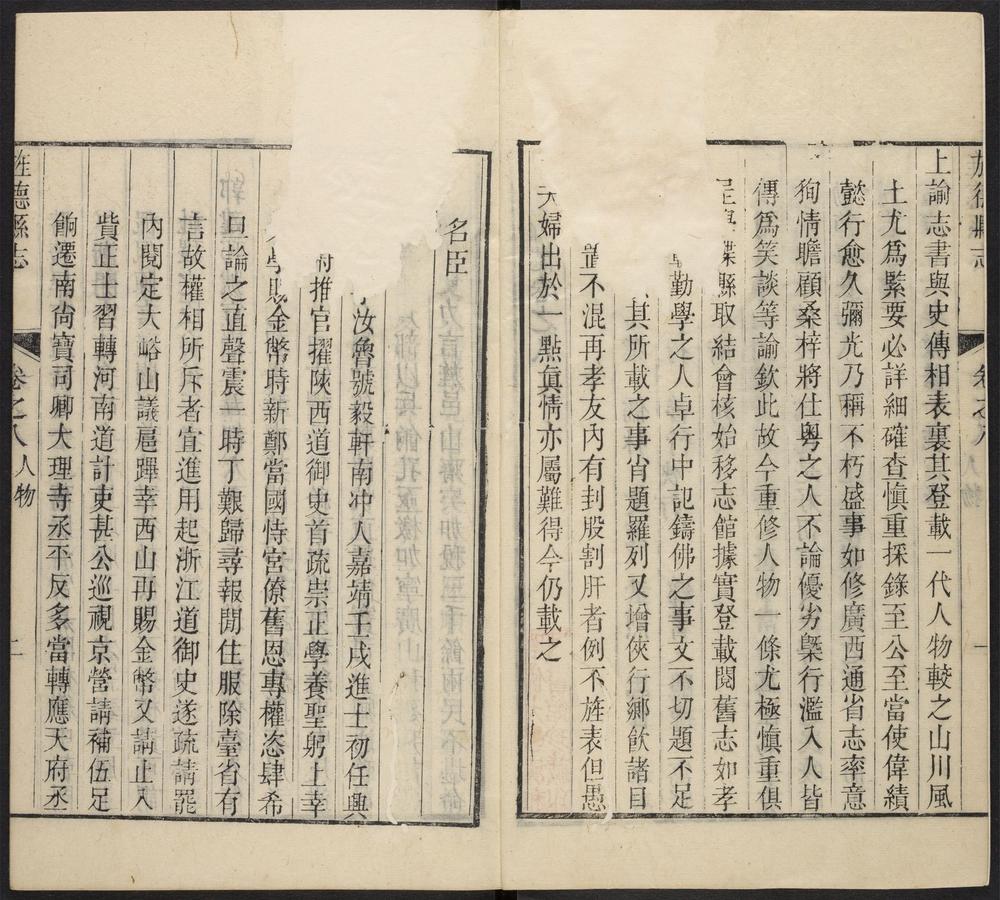 上諭志書與史傳相表裏其登載一代人物較之山川風
土尤爲緊要必詳細確查愼重採錄至公至當使偉績
懿行愈久彌光乃稱不朽盛事如修廣西通省志率意
狥情瞻顧桑梓將仕粤之人不論優劣槩行濫入人皆
傳爲笑談等諭欽此故今重修人物一條尤極愼重俱
縣取結會核始移志館據實登載閱舊志如孝
勤學之人卓行中記鑄佛之事文不切題不足
其所載之事肖題羅列又增俠行鄉飲諸目
不混再孝友內有刲股割肝者例不旌表但愚
夫婦出於一㸃眞情亦屬難得今仍載之
名臣
汝魯號毅軒南冲人嘉靖壬戌進士初任興
推官擢陝西道御史首疏崇正學養聖躬上幸
賜金幣時新鄭當國恃宮僚舊恩專權恣肆希
旦論之直聲震一時丁艱歸尋報閒住服除臺省有
言故權相所斥者宜進用起浙江道御史遂疏請罷
內閱定大峪山議扈蹕幸西山再賜金幣又請止入
貲正士習轉河南道計吏甚公巡視京營請補伍足
餉遷南尚寶司卿大理寺丞平反多當轉應天府丞
旌德縣志
卷之八 人物
二